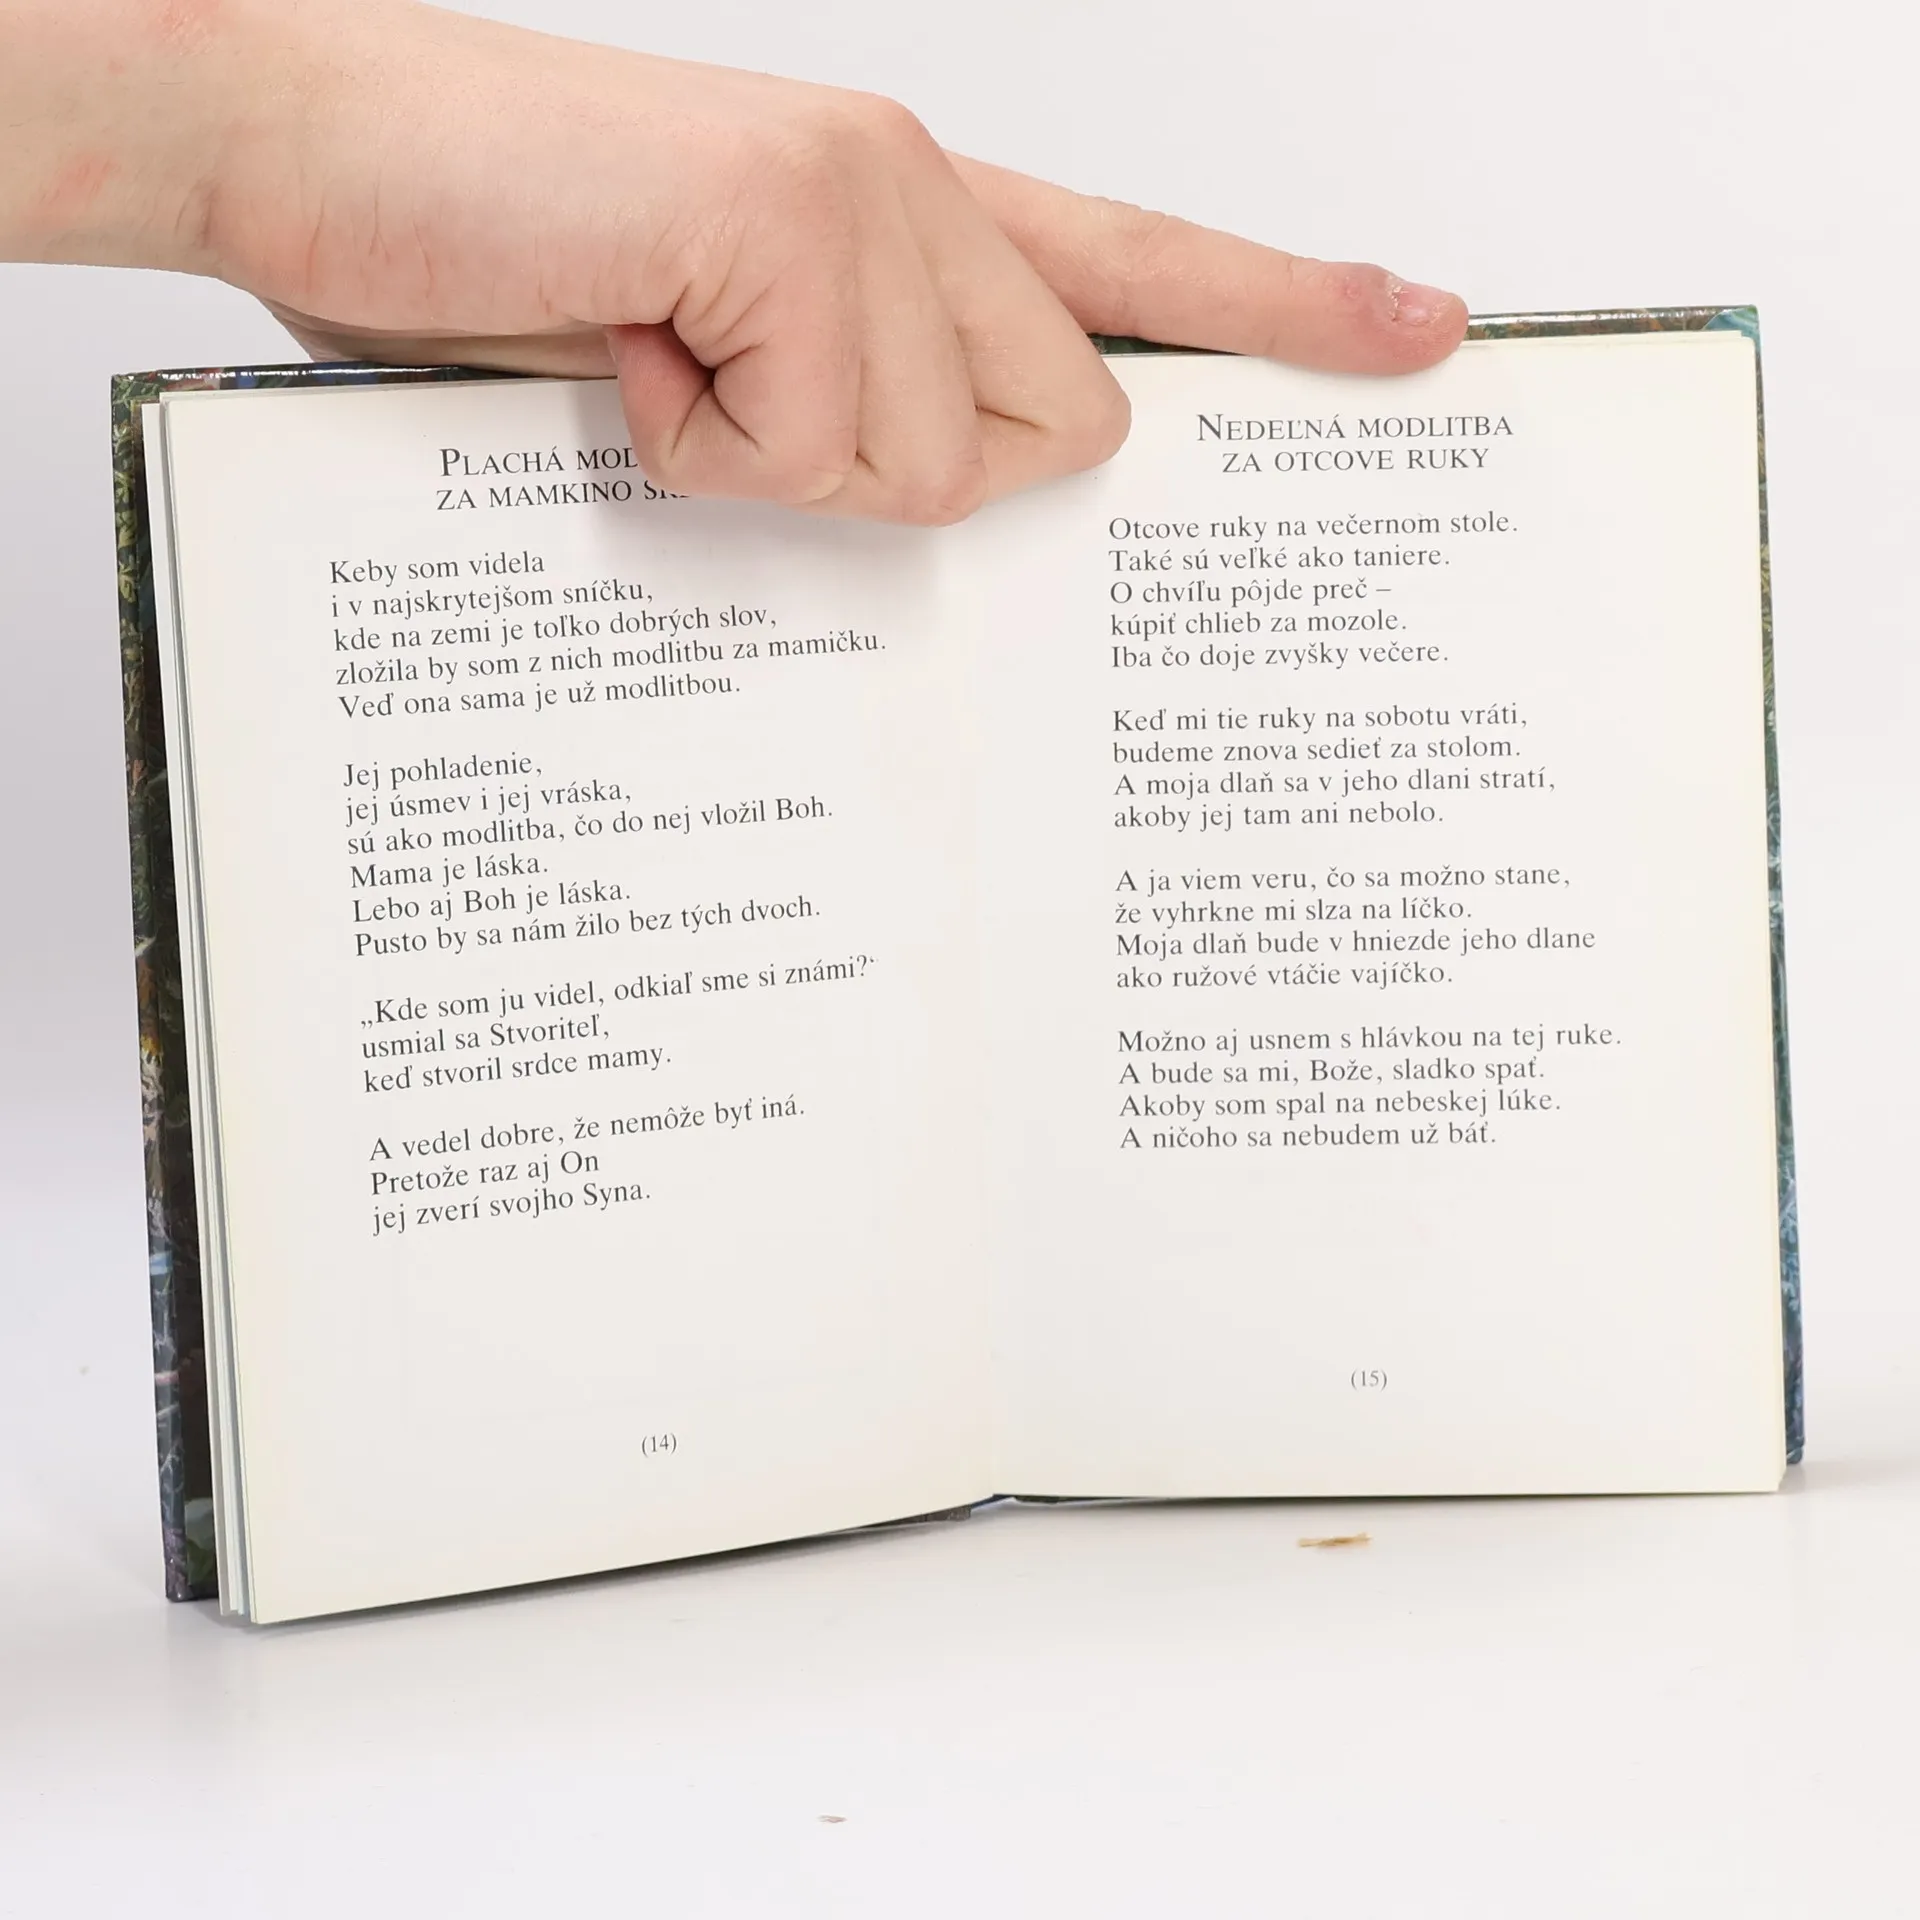 PLACHÁ
ZA MAMKINO
Keby som videla
i v najskrytejšom sníčku,
kde na zemi je toľko dobrých slov,
zložila by som z nich modlitbu za mamičku.
Veď ona sama je už modlitbou.
Jej pohladenie,
jej úsmev i jej vráska,
sú ako modlitba, čo do nej vložil Boh.
Mama je láska.
Lebo aj Boh je láska.
Pusto by sa nám žilo bez tých dvoch.
„Kde som ju videl, odkiaľ sme si známi?“
usmial sa Stvoriteľ,
keď stvoril srdce mamy.
A vedel dobre, že nemôže byť iná.
Pretože raz aj On
jej zverí svojho Syna.
(14)
NEDEĽNÁ MODLITBA
ZA OTCOVE RUKY
Otcove ruky na večernom stole.
Také sú veľké ako taniere.
O chvíľu pôjde preč –
kúpiť chlieb za mozole.
Iba čo doje zvyšky večere.
Keď mi tie ruky na sobotu vráti,
budeme znova sedieť za stolom.
A moja dlaň sa v jeho dlani stratí,
akoby jej tam ani nebolo.
A ja viem veru, čo sa možno stane,
že vyhrkne mi slza na líčko.
Moja dlaň bude v hniezde jeho dlane
ako ružové vtáčie vajíčko.
Možno aj usnem s hlávkou na tej ruke.
A bude sa mi, Bože, sladko spať.
Akoby som spal na nebeskej lúke.
A ničoho sa nebudem už báť.
(15)